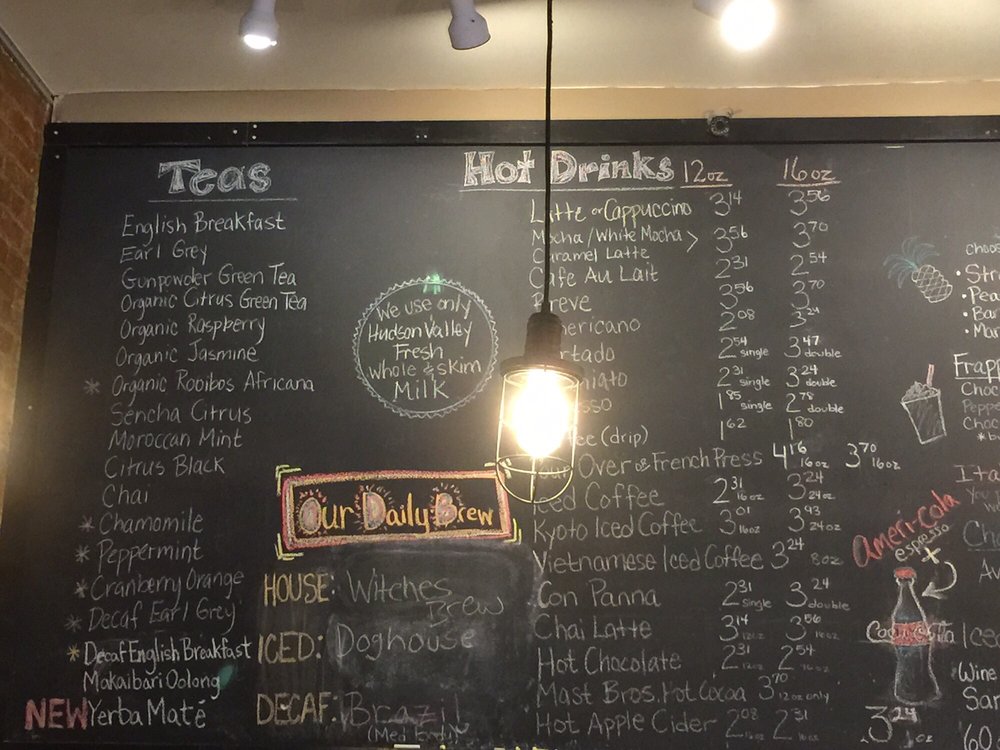 Teas
English Breakfast
Earl Grey
Gunpowder Green Tea
Organic Citrus Green Tea
Organic Raspberry
Organic Jasmine
* Organic Rooibos Africana
Sencha Citrus
Moroccan Mint
Citrus Black
Chai
* Chamomile
* Peppermint
* Cranberry Orange
* Decaf Earl Grey
* Decaf English Breakfast
Makaibari Oolong
NEW Yerba Maté
We use only
Hudson Valley
Fresh
whole & skim
Milk
Our Daily Brew
HOUSE: Witches
Brew
ICED: Doghouse
DECAF: Brazil
Hot Drinks 12oz 16oz
Latte or Cappuccino 3.14 3.56
Mocha/White Mocha > 3.56 3.70
Caramel Latte
Cafe Au Lait 2.31 2.54
Breve 3.56 3.70
Americano 2.08 3.24
2.54 single 3.47 double
2.31 single 3.24 double
1.85 single 2.78 double
(drip) 1.62 1.80
Over or French Press 4.16 16oz 3.70 16oz
Iced Coffee 2.31 16oz 3.24 24oz
Kyoto Iced Coffee 3.01 16oz 3.93 24oz
Vietnamese Iced Coffee 3.24 8oz
Con Panna 2.31 single 3.24 double
Chai Latte 3.14 12oz 3.56 16oz
Hot Chocolate 2.31 12oz 2.54 16oz
Mast Bros. Hot Cocoa 3.70 12oz only
Hot Apple Cider 2.08 12oz 2.31 16oz
Frapp
Choc
Choc
Ameri-Cola
espresso
+
Coca-Cola
3.24
Iced
Wine